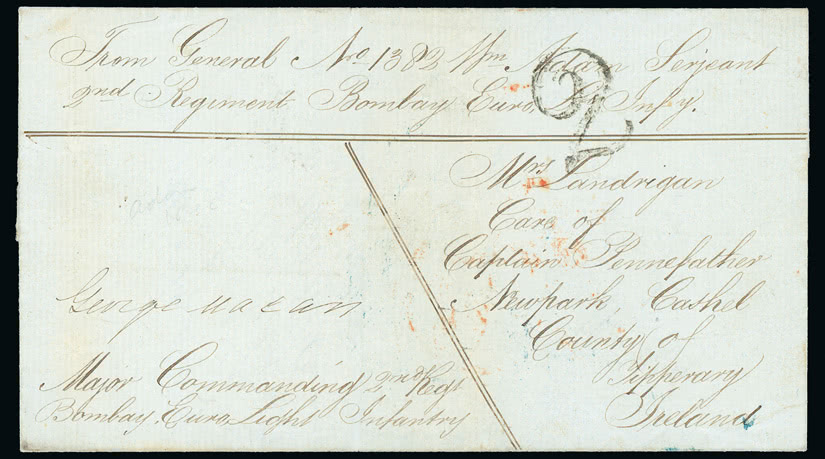 From General No. 1383 Wm Adam Serjeant
2nd Regiment Bombay Euro. Lt Infy.
2
Mrs Landrigan
Care of
Captain Pennefather
Newpark, Cashel
County of
Tipperary
Ireland
George Macan
Major Commanding 2nd Regt
Bombay Euro. Light Infantry